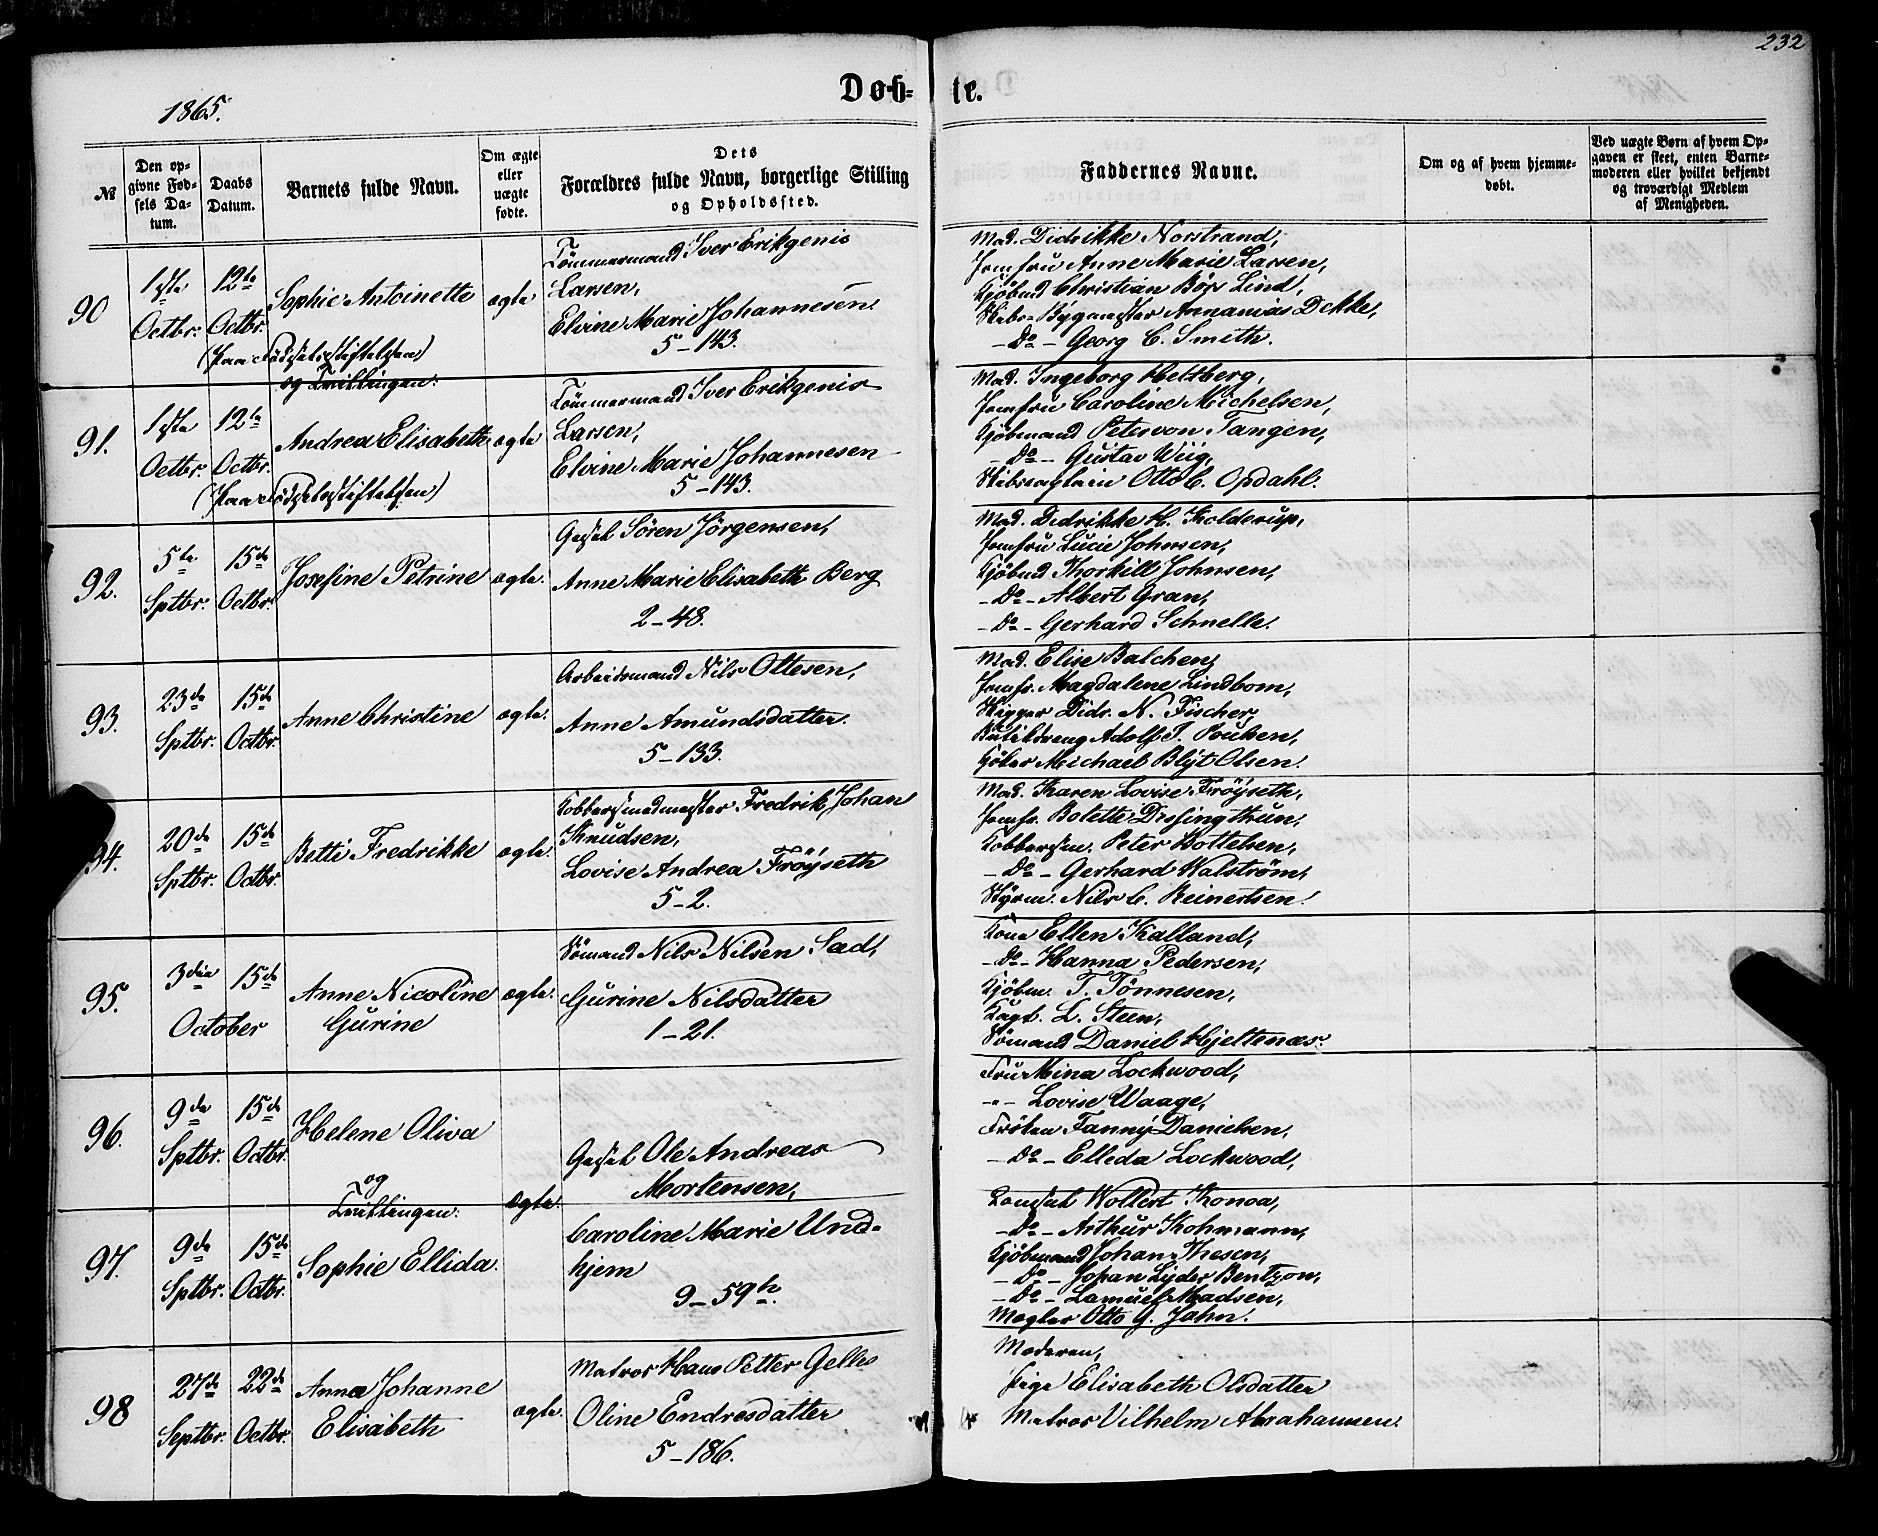 232
Døb-
te.
1865.
№
Den op-
givne Fød-
sels Da-
tum.
Daabs
Datum.
Barnets fulde Navn.
Om ægte
eller
uægte
fødte.
Dets
Forældres fulde Navn, borgerlige Stilling
og Opholdssted.
Faddernes Navne.
Om og af hvem hjemme-
døbt.
Ved uægte Børn af hvem Op-
gaven er skeet, enten Barne-
moderen eller hvilket bekjendt
og troværdigt Medlem
af Menigheden.
90
1ste
Octbr:
12te
Octbr.
Sophie Antoinette
(paa Fødselsstiftelsen)
og Tvillingen:
ægte
Tömmermand Iver Erikgenis
Larsen,
Elvine Marie Johannesen.
5-143.
Mad. Didrikke Norstrand,
Jomfru Anne Marie Larsen,
Kjöbmd Christian Börs Lind,
Skibs-Bygmester Annanias Dekke,
-Do- Georg C. Smith.
91.
1ste
Octbr.
12te
Octbr.
Andrea Elisabeth
(paa Fødselsstiftelsen)
ægte
Tömmermand Iver Erikgenis
Larsen,
Elvine Marie Johannesen
5-143.
Mad. Ingeborg Heltberg,
Jomfru Caroline Michelsen,
Kjöbmand Peter von Tangen,
-Do- Gustav Wiig,
Skibscaptain Otto C. Opdahl.
92.
5te
Sptbr.
15de
Octbr.
Josefine Petrine
ægte.
Gesel Sören Jörgensen,
Anne Marie Elisabeth Berg
2-48.
Mad. Didrikke H. Kolderup,
Jomfru Lucie Johnsen,
Kjöbmd Thorkill Johnsen,
-Do- Albert Gran,
-Do- Gerhard Schnelle.
93.
23de
Sptbr.
15de
Octbr.
Anne Christine
ægte.
Arbeidsmand Nils Ottesen,
Anne Amundsdatter.
5-133.
Mad. Elise Balchen,
Jomfr. Magdalene Lindbom,
Skipper Didr. N. Fischer,
Adolf J. Poulsen,
Michael Blyt Olsen.
94.
20de
Sptbr.
15de
Octbr.
Betti Fredrikke
ægte.
Kobbersmedmester Fredrik Johan
Knudsen,
Lovise Andrea Fröyseth
5-2.
Mad. Karen Lovise Fröyseth,
Jomfr. Bolette Dissingthun,
Kobbersm. Peter Bottelsen,
-Do- Gerhard Walström,
Styrm. Nils C. Reinertsen.
95.
3die
October
15de
Anne Nicoline
Gurine
ægte.
Sömand Nils Nilsen Sæd,
Gurine Nilsdatter
1-21.
Kone Ellen Kalland,
-Do- Hanna Pedersen,
Kjöbm. T. Tönnesen,
Kapt. L. Steen,
Sömand Daniel Hjeltenæs.
96.
9de
Sptbr.
15de
Octbr.
Helene Oliva
og
Tvillingen:
Ægte.
Gesel Ole Andreas
Mortensen,
Fru Mina Lockwood,
-"- Lovise Waage,
Fröken Fanny Danielsen,
-Do- Elleda Lockwood,
97.
9de
Sptbr.
15de
Octbr.
Sophie Ellida.
Caroline Marie Und-
hjem
9-59b.
Konsul Wollert Konow,
-Do- Arthur Kohmann,
Kjöbmand Johan Thesen,
-Do- Johan Lyder Bentzon,
-Do- Samuel Madsen,
Mægler Otto G. Jahn.
98
27de
Septbr.
22de
Octbr.
Anna Johanne
Elisabeth
ægte.
Matros Hans Petter Gelles
Oline Endresdatter
5-186.
Moderen,
Pige Elisabeth Olsdatter
Matros Vilhelm Abrahamsen.